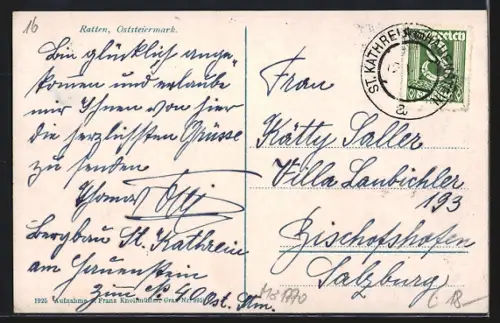 16
Ratten, Oststeiermark.
Bin glücklich ange-
komen und erlaube
mir Ihnen von hier
die herzlichsten Grüsse
zu senden
Thomas
Bergbau St. Kathrein
am Hauenstein
Zim No 40 Ost. Stm.
1925 Aufnahme v. Franz Knollmüller, Graz Nr.
ST. KATHREIN
HAUENSTEIN
a
Frau
Kätty Saller
Villa Laubichler
193
Bischofshofen
Salzburg
18-